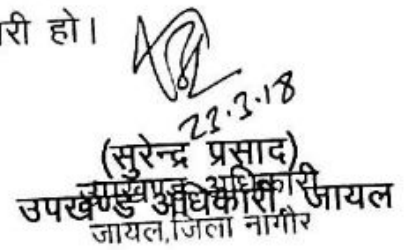 री हो।
23.3.18
(सुरेन्द्र प्रसाद)
उपखण्ड अधिकारी
उपखण्ड अधिकारी, जायल
जायल, जिला नागौर